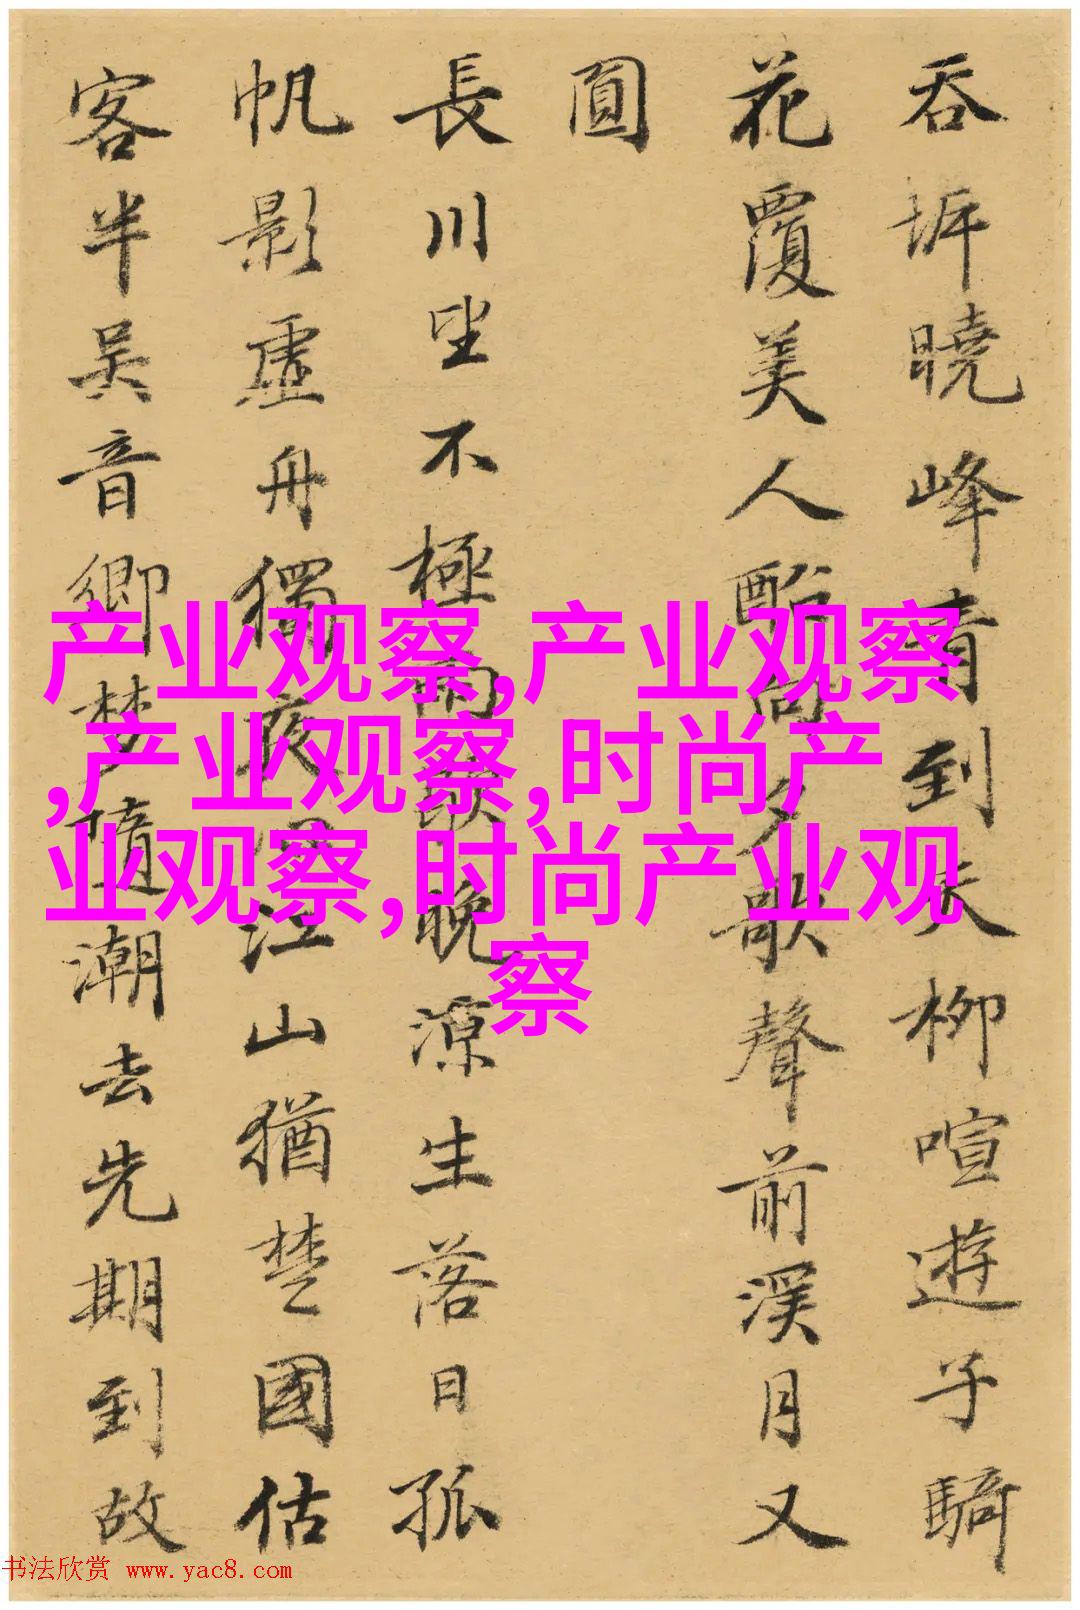 吞坼曉峰青到天柳喧遊子騎
花覆美人向夕歌聲前溪月又
圓
長川坐不極歌晚涼生落日孤
帆影虛舟獨夜江山猶楚國估
客半吳音鄉夢隨潮去先期到故
产业观察,产业观察
,产业观察,时尚产
业观察,时尚产业观
察
书法欣赏 www.yac8.com